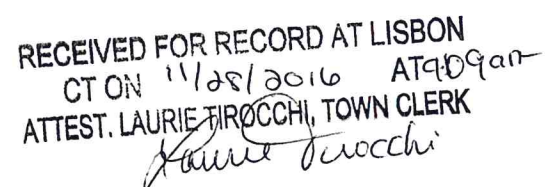 RECEIVED FOR RECORD AT LISBON
CT ON 11/28/2016 AT 9:09am
ATTEST. LAURIE TIROCCHI, TOWN CLERK
Laurie Tirocchi